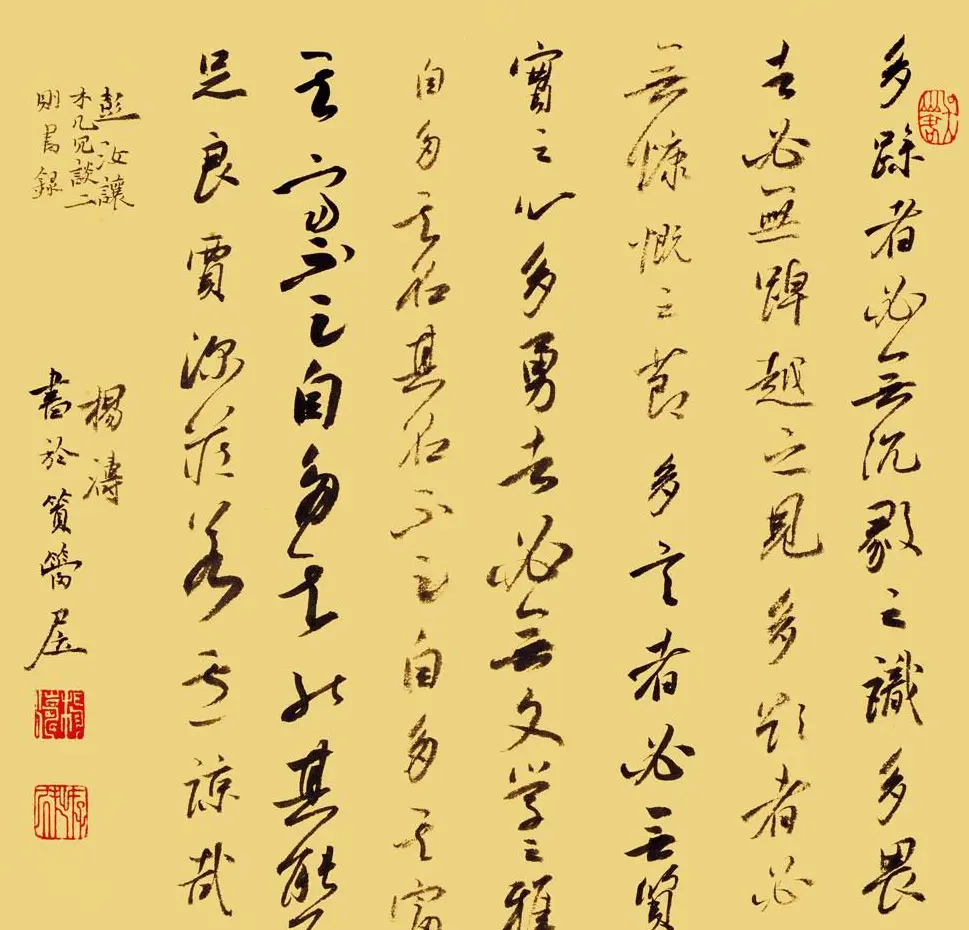 多躁者必無沉毅之識多畏
者必無踔越之見多欲者必
無慷慨之節多言者必無質
實之心多勇者必無文學之雅
自多其名其名不足自多其富
其富不足自多其能其能不
足良賈深藏若虛諒哉
彭汝讓
木几冗談二
則書錄
楊濤
書於篔簹屋